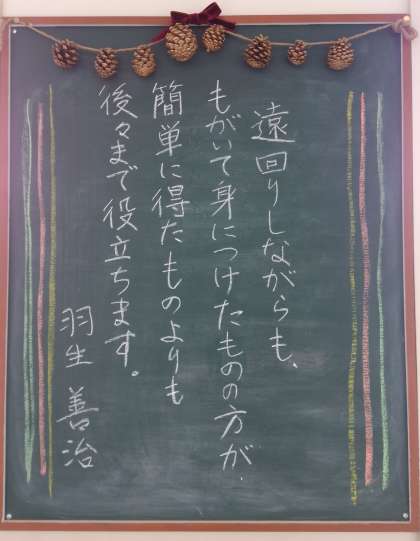 遠回りしながらも、
もがいて身につけたものの方が、
簡単に得たものよりも
後々まで役立ちます。
羽生 善治